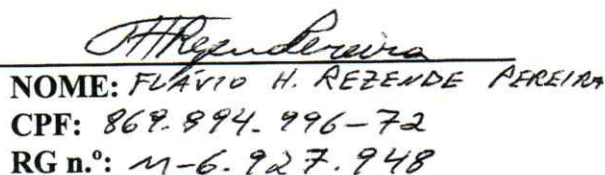 NOME: FLÁVIO H. REZENDE PEREIRA
CPF: 869.894.996-72
RG n.º: M-6.927.948